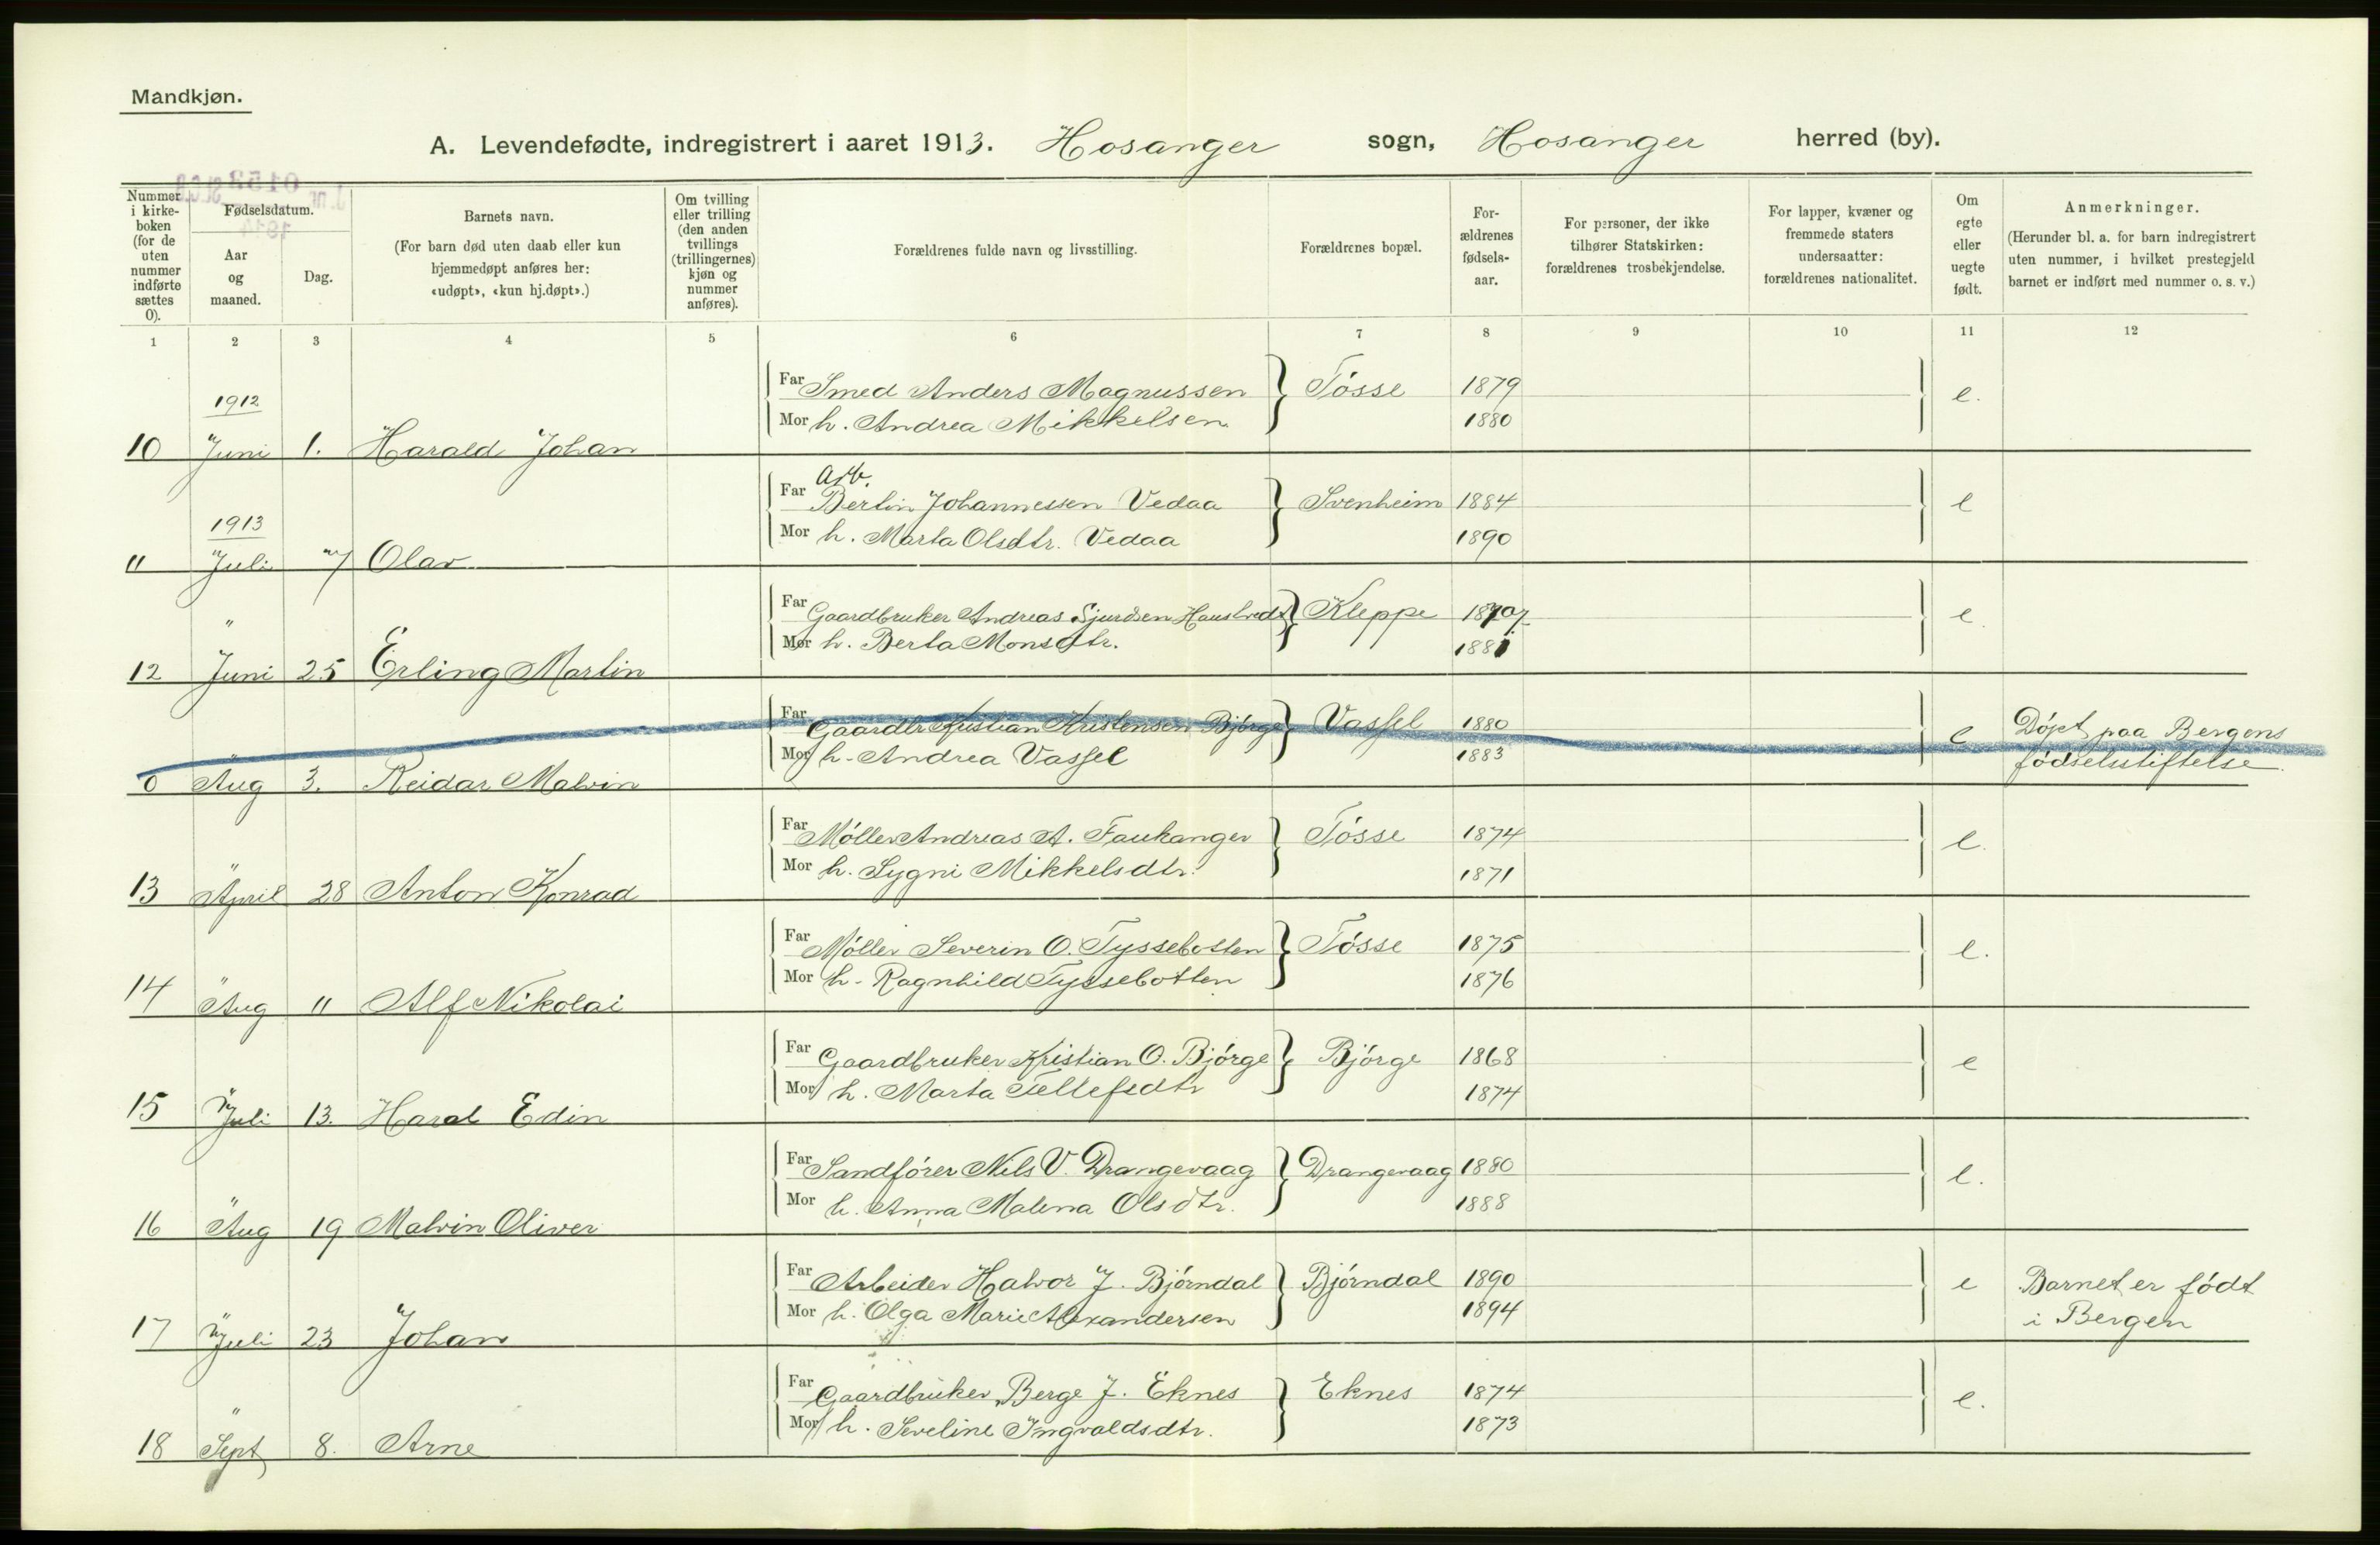 Mandkjøn.
A. Levendefødte, indregistrert i aaret 1913. Hosanger sogn, Hosanger herred (by).
Nummer i kirke-boken (for de uten nummer indførte sættes 0).
Fødselsdatum.
Aar og maaned.
Dag.
Barnets navn.
(For barn død uten daab eller kun hjemmedøpt anføres her: «udøpt», «kun hj.døpt».)
Om tvilling eller trilling (den anden tvillings (trillingernes) kjøn og nummer anføres).
Forældrenes fulde navn og livsstilling.
Forældrenes bopæl.
For-ældrenes fødsels-aar.
For personer, der ikke tilhører Statskirken: forældrenes trosbekjendelse.
For lapper, kvæner og fremmede staters undersaatter: forældrenes nationalitet.
Om egte eller uegte født.
Anmerkninger.
(Herunder bl. a. for barn indregistrert uten nummer, i hvilket prestegjeld barnet er indført med nummer o. s. v.)
1 2 3 4 5 6 7 8 9 10 11 12
Far Smed Anders Magnussen Tósse 1879 e.
1912
Mor h. Andrea Mikkelsen 1880
10 Juni 1. Harald Johan
Arb.
Far Bertin Johannessen Vedaa Svenheim 1884 e
1913
Mor h. Marta Olsdtr. Vedaa 1890
11 Juli 7 Olav
Far Gaardbruker Andreas Sjurdsen Kleppe e
"
Mor h. Berta Monsdtr. 1881
12 Juni 25 Erling Martin
Far Gaardbr Kristian Kristensen Bjórge Vassel 1880 e Dópt paa Bergens
Mor h. Andrea Vassel 1883 fódselsstiftelse.
0 Aug 3. Reidar Malvin
Far Møller Andreas A. Faukanger Tósse 1874 e.
Mor h. Sygni Mikkelsdtr. 1871
13 April 28 Anton Konrad
Far Møller Severin O. Tyssebotten Tósse 1875 e.
Mor h. Ragnhild Tyssebotten 1876
14 Aug 11 Alf Nikolai
Far Gaardbruker Kristian O. Bjórge Bjórge 1868 e
Mor h. Marta Tellefsdtr 1874
15 Juli 13. Haral Edin
Far Sandfórer Nils V. Drangevaag Drangevaag 1880 e.
Mor h. Anna Malena Olsdtr. 1888
16 Aug 19 Malvin Oliver
Far Arbeider Halvor J. Bjórndal Bjórndal 1890 e Barnet er fódt
Mor h. Olga Marie Alexandersen 1894 i Bergen
17 Juli 23 Johan
Far Gaardbruker Berge J. Eknes Eknes 1874 e.
Mor h. Seveline Ingvaldsdtr. 1873
18 Sept 8. Arne